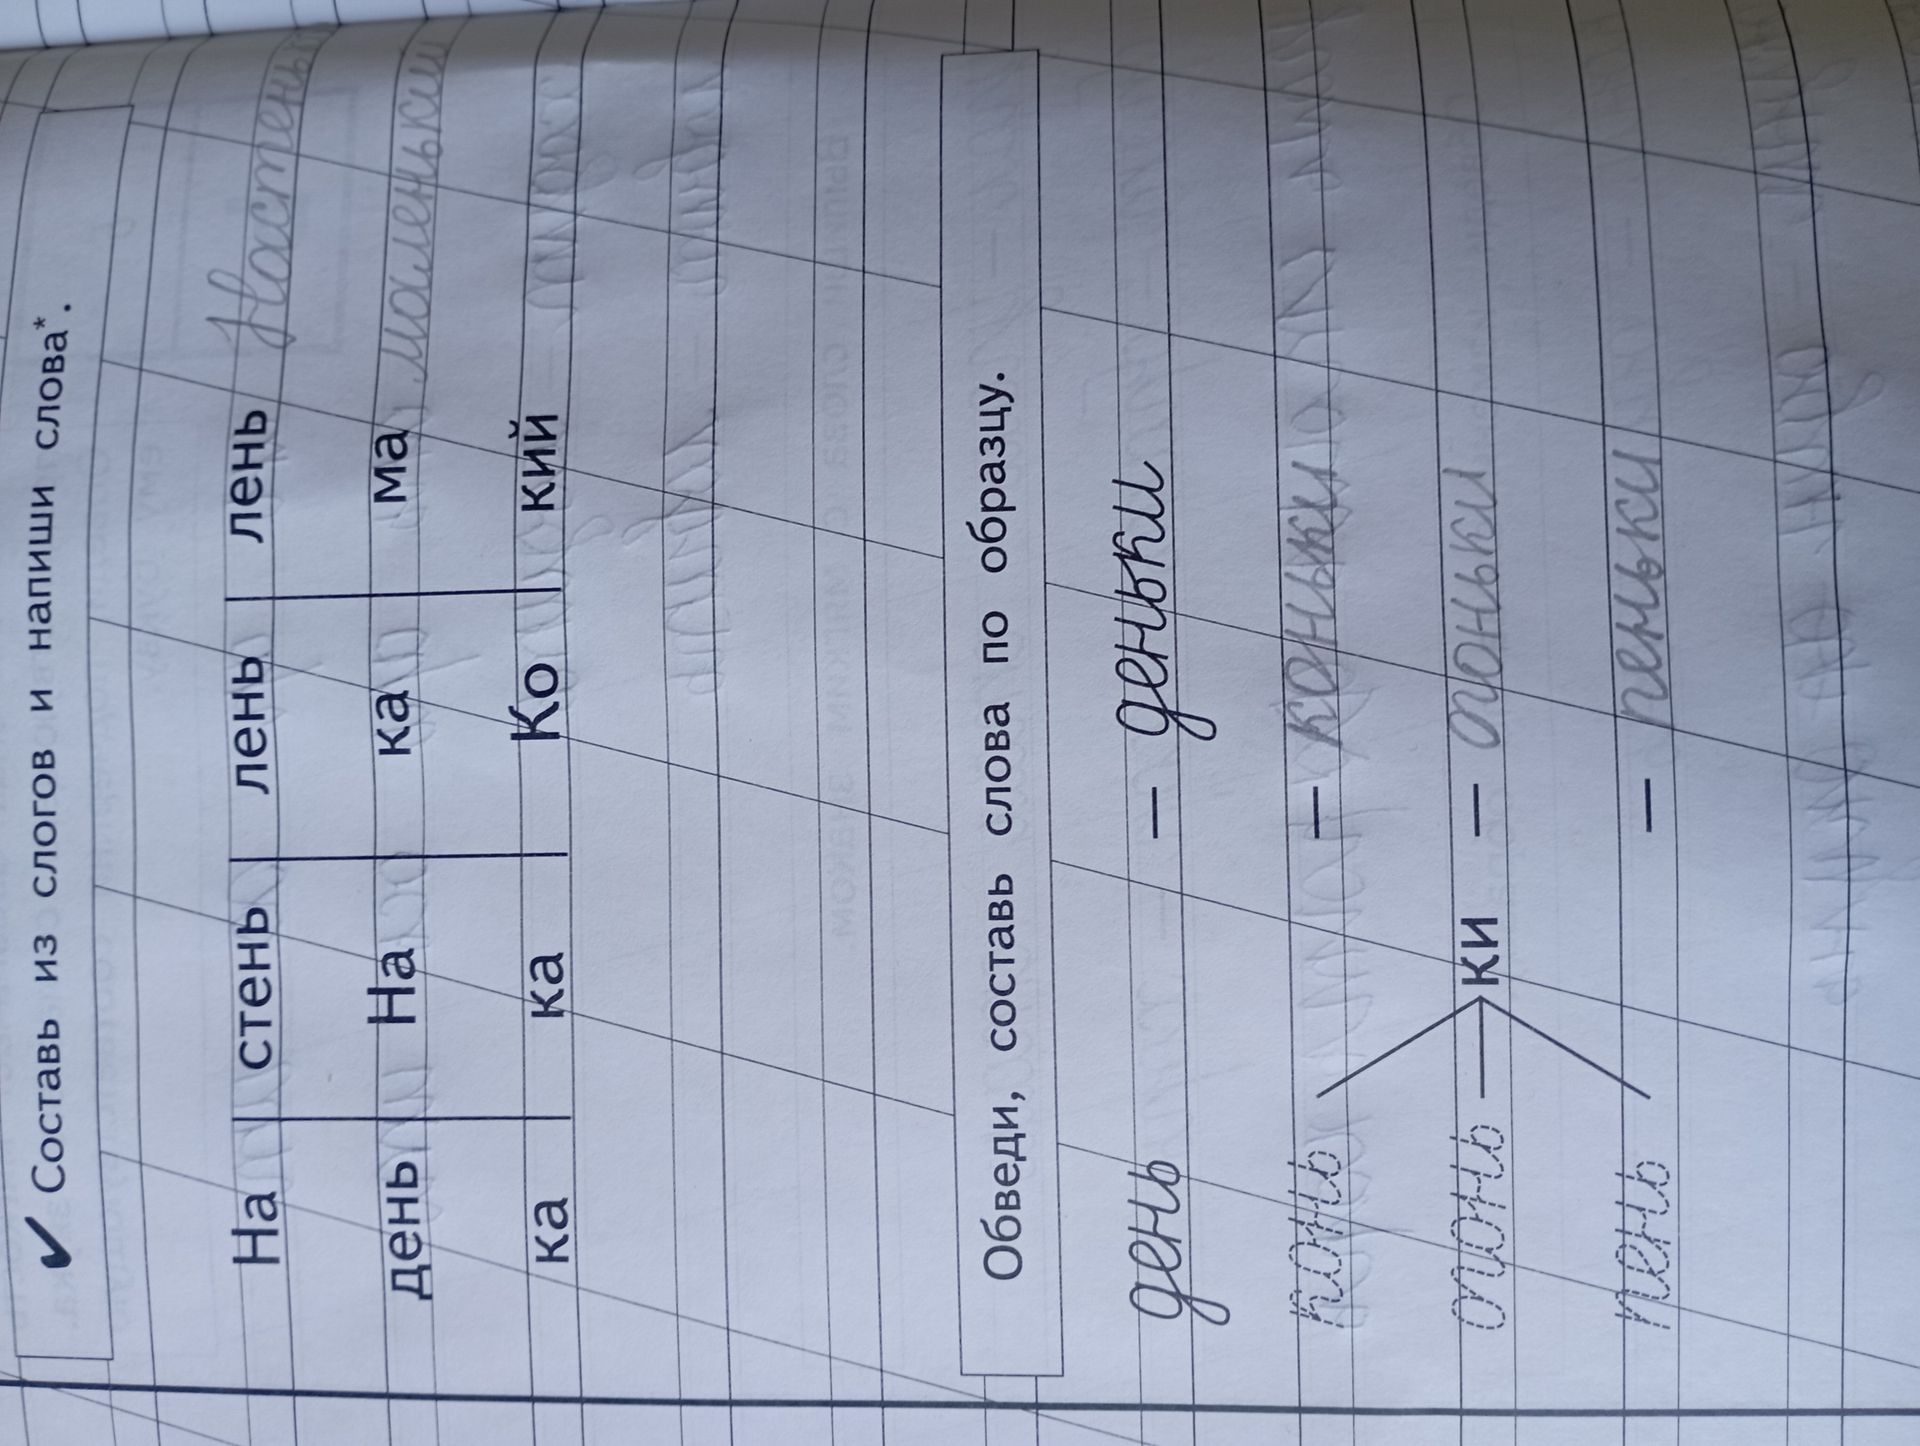 ✔ Составь из слогов и напиши слова*.
На стень лень лень Настеньк
день На ка ма маленьки
ка ка Ко кий
Обведи, составь слова по образцу.
день — деньки
конь — коньки
огонь — ки — огоньки
пень — пеньки